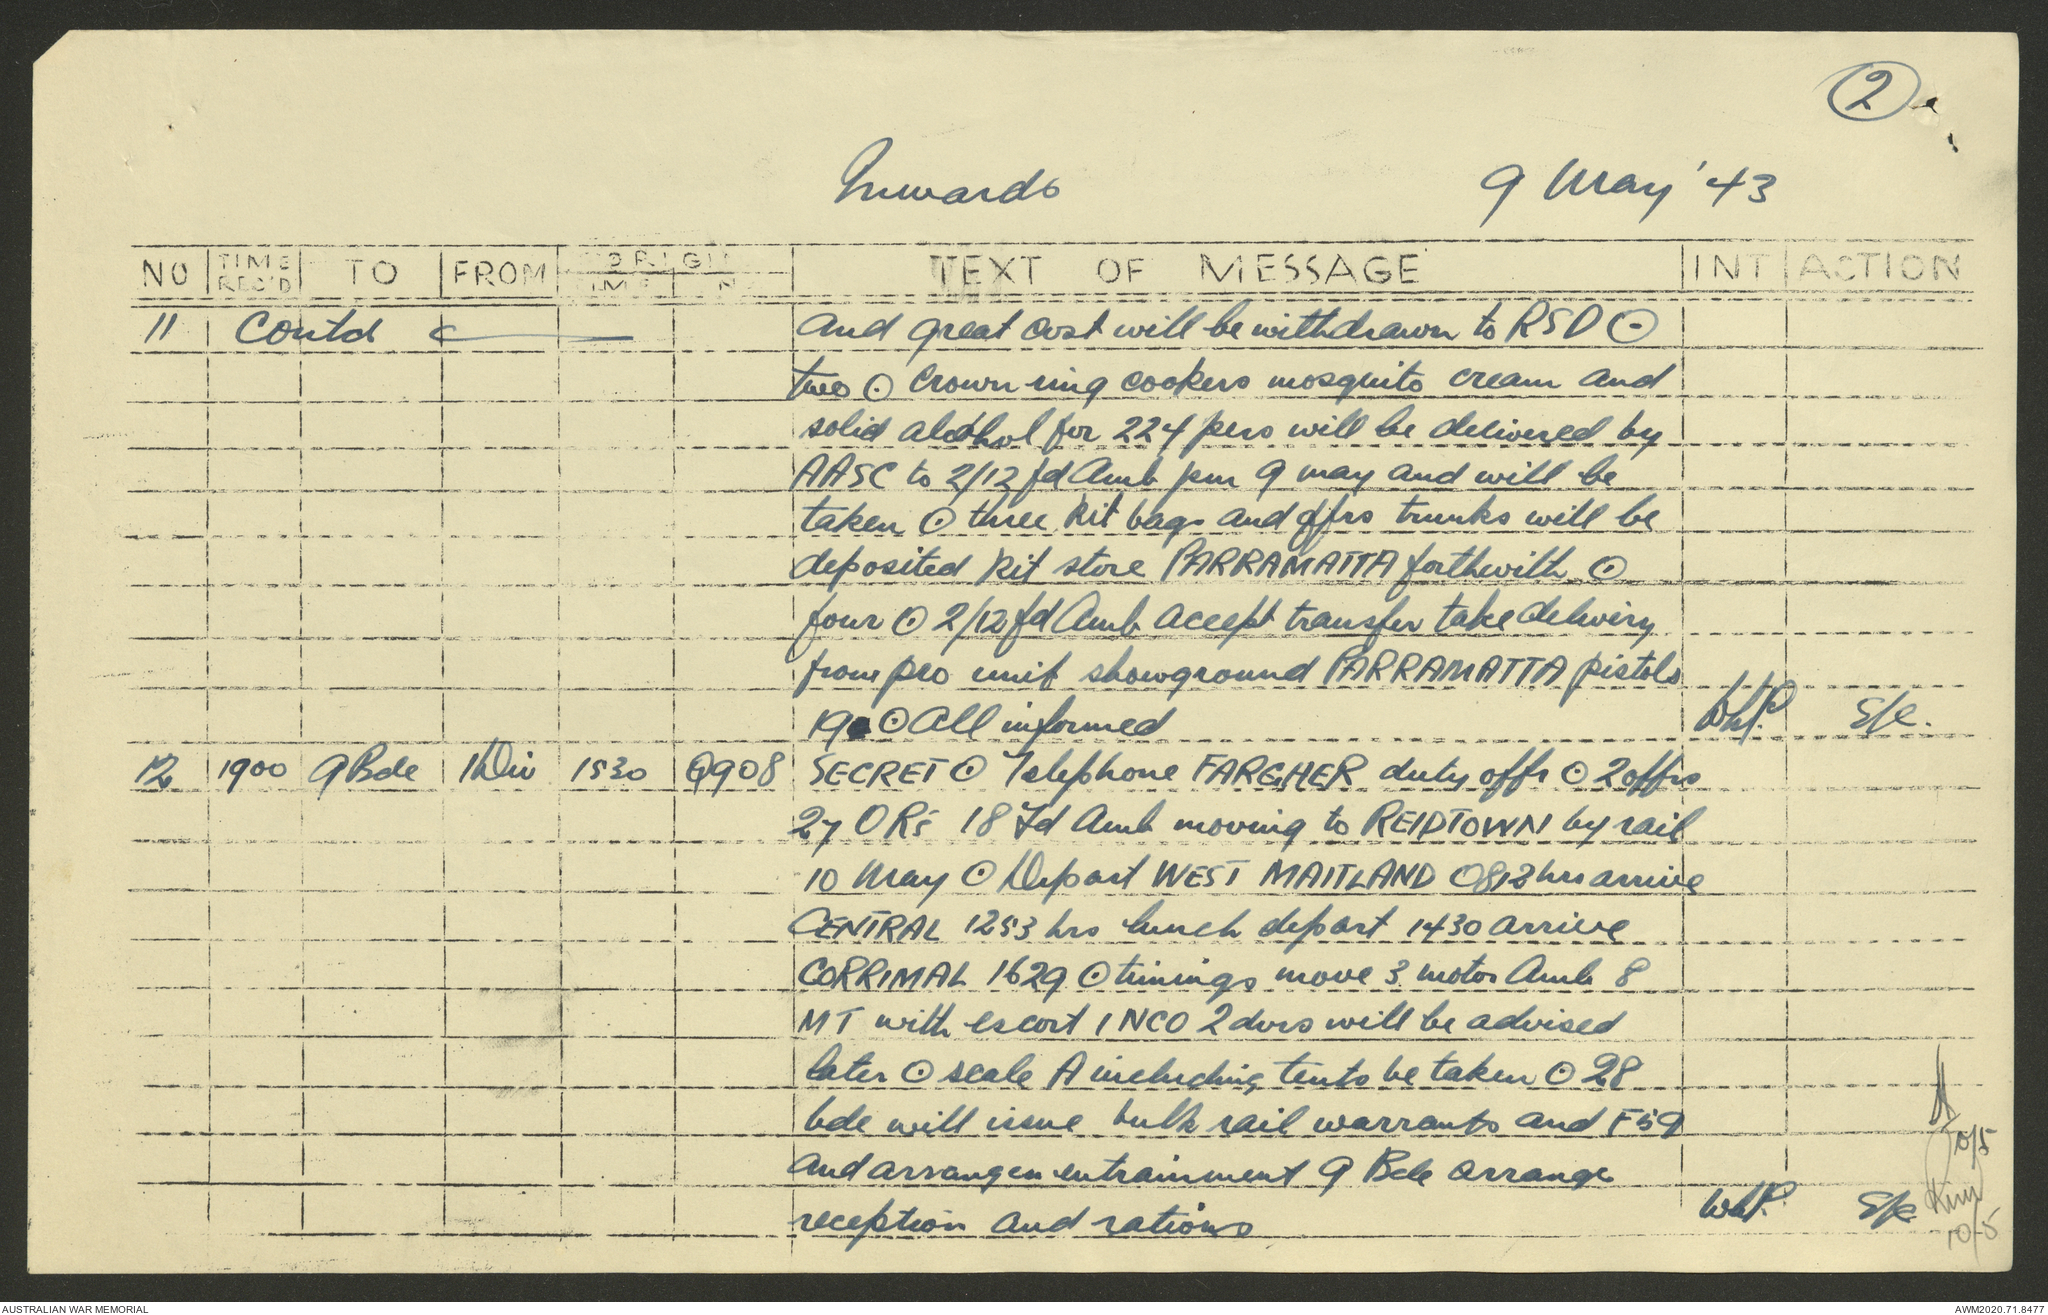 2
Inwards 9 May '43
NO TIME REC'D TO FROM ORIGIN TEXT OF MESSAGE INT ACTION
TIME N
11 Contd and great cost will be withdrawn to RSD ⊙
two ⊙ Crown ring cookers mosquito cream and
solid alcohol for 224 pers will be delivered by
AASC to 2/12 fd Amb pm 9 may and will be
taken ⊙ three kit bags and offrs trunks will be
deposited kit store PARRAMATTA forthwith ⊙
four ⊙ 2/12 fd Amb accept transfer take delivery
from pro unit showground PARRAMATTA pistols
19 ⊙ All informed WhP S/c.
12 1900 9 Bde 1 Div 1530 Q908 SECRET ⊙ Telephone FARGHER duty offr ⊙ 2 offrs
27 ORs 18 Fd Amb moving to REIDTOWN by rail
10 May ⊙ Depart WEST MAITLAND 0812 hrs arrive
CENTRAL 1253 hrs lunch depart 1430 arrive
CORRIMAL 1629 ⊙ timings move 3 motor Amb 8
MT with escort 1 NCO 2 dvrs will be advised
later ⊙ scale A including tents be taken ⊙ 28
bde will issue bulk rail warrants and F59
and arrangem entrainment 9 Bde arrange
reception and rations WhP. S/c.
10/5
10/5
AUSTRALIAN WAR MEMORIAL AWM2020.71.8477